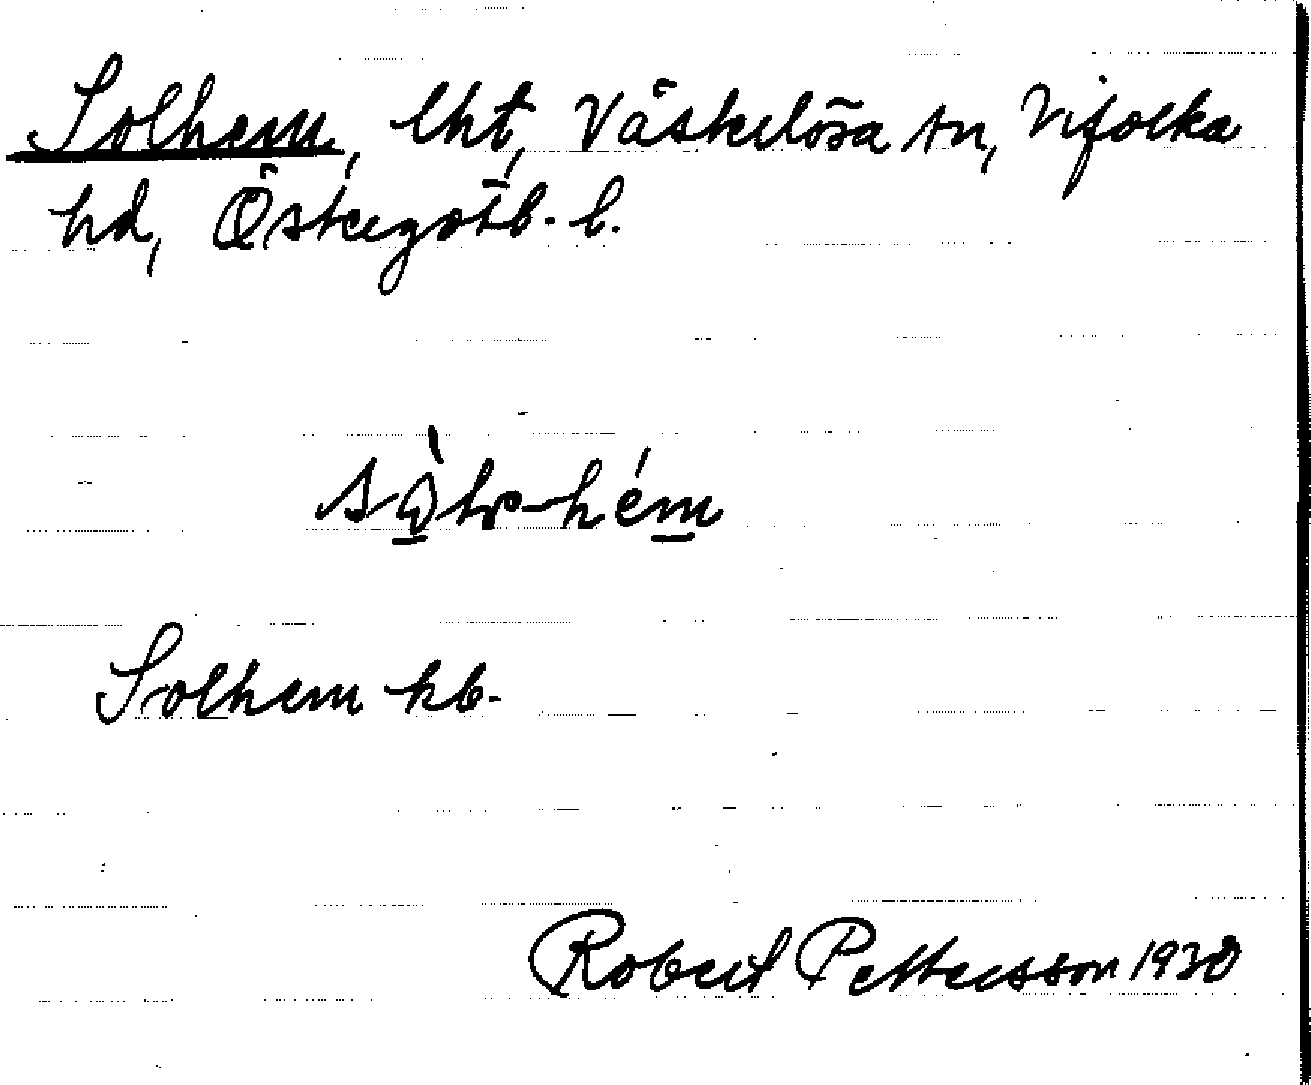 Solhem, lht, Väskelösa sn, Vifolka
hd, Östergötl. l.
Solhem kb.
Robert Pettersson 1930